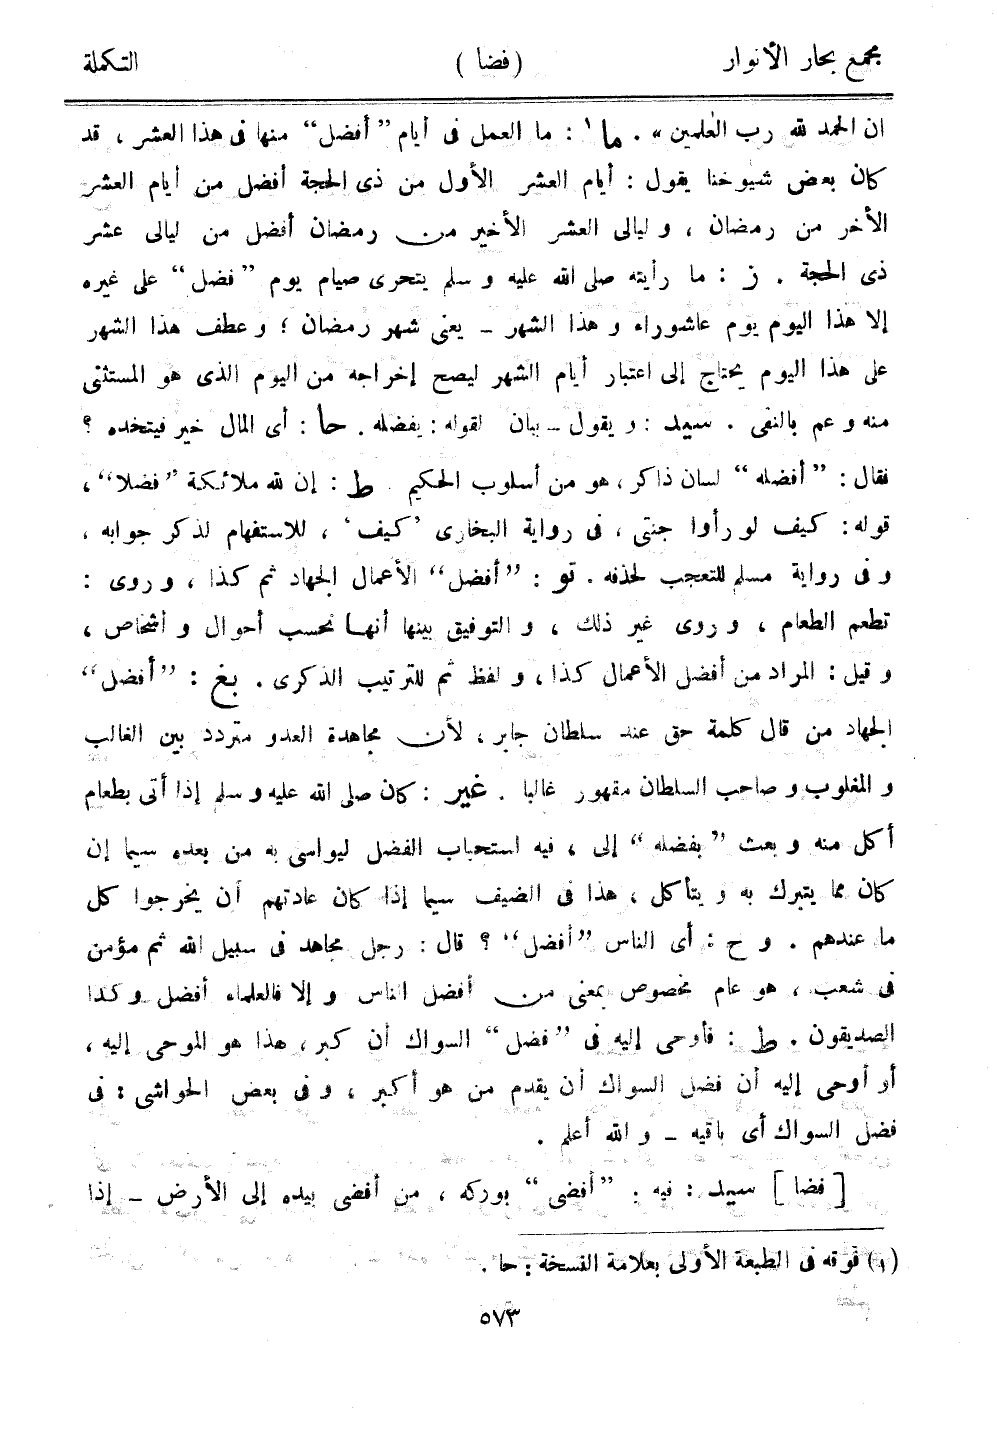 مجمع بحار الأنوار (فضا) التكملة
ان الحمد لله رب العٰلمين» . ما١ : ما العمل فى أيام ”أفضل“ منها فى هذا العشر ، قد
كان بعض شيوخنا يقول : أيام العشر الأول من ذى الحجة أفضل من أيام العشر
الأخر من رمضان ، و ليالى العشر الأخير من رمضان أفضل من ليالى عشر
ذى الحجة . ز : ما رأيته صلى الله عليه و سلم يتحرى صيام يوم ”فضل“ على غيره
إلا هذا اليوم يوم عاشوراء و هذا الشهر – يعنى شهر رمضان ؛ و عطف هذا الشهر
على هذا اليوم يحتاج إلى اعتبار أيام الشهر ليصح إخراجه من اليوم الذى هو المستثنى
منه و عم بالنفى . سيد : و يقول – بيان لقوله : يفضله . حا : أى المال خير فيتخده ؟
فقال : ”أفضله“ لسان ذاكر ، هو من أسلوب الحكيم . ط : إن لله ملائكة ”فضلا“ ،
قوله : كيف لو رأوا جنتى ، فى رواية البخارى ’كيف‘ ، للاستفهام لذكر جوابه ،
و فى رواية مسلم للتعجب لحذفه . تو : ”أفضل“ الأعمال الجهاد ثم كذا ، و روى :
تطعم الطعام ، و روى غير ذلك ، و التوفيق بينها أنها بحسب أحوال و أشخاص ،
و قيل : المراد من أفضل الأعمال كذا ، و لفظ ثم للترتيب الذكرى . بغ : ”أفضل“
الجهاد من قال كلمة حق عند سلطان جابر ، لأن مجاهدة العدو متردد بين الغالب
و المغلوب و صاحب السلطان مقهور غالبا . غير : كان صلى الله عليه و سلم إذا أتى بطعام
أكل منه و بعث ”بفضله“ إلى ، فيه استحباب الفضل ليواسى به من بعده سيما إن
كان مما يتبرك به و يتأكل ، هذا فى الضيف سيما إذا كان عادتهم أن يخرجوا كل
ما عندهم . و ح : أى الناس ”أفضل“ ؟ قال : رجل مجاهد فى سبيل الله ثم مؤمن
فى شعب ، هو عام مخصوص بمعنى من أفضل الناس و إلا فالعلماء أفضل و كذا
الصديقون . ط : فأوحى إليه فى ”فضل“ السواك أن كبر ، هذا هو الموحى إليه ،
أو أوحى إليه أن فضل السواك أن يقدم من هو أكبر ، و فى بعض الحواشى : فى
فضل السواك أى باقيه – و الله أعلم .
[ فضا ] سيد : فيه : ”أفضى“ بوركه ، من أفضى بيده إلى الأرض – إذا
(١) فوقه فى الطبعة الأولى بعلامة النسخة : حا .
٥٧٣